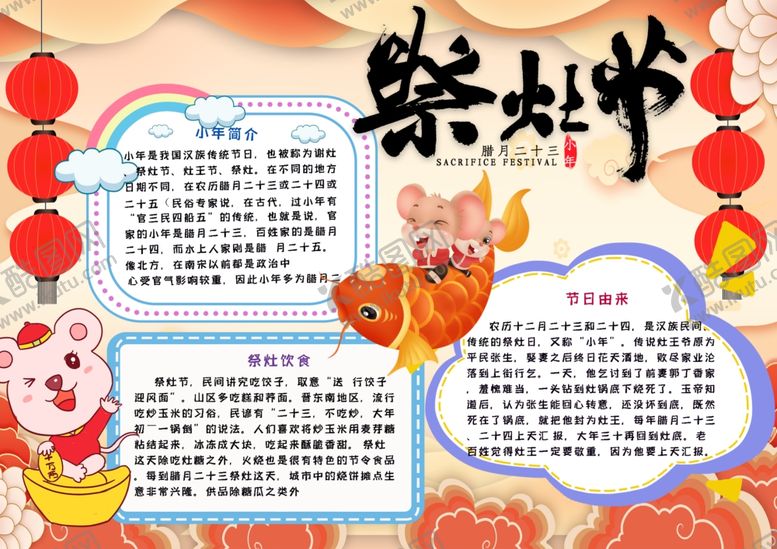 祭灶节
腊月二十三
SACRIFICE FESTIVAL
小年
小年简介
小年是我国汉族传统节日，也被称为谢灶
、祭灶节、灶王节、祭灶。在不同的地方
日期不同，在农历腊月二十三或二十四或
二十五（民俗专家说，在古代，过小年有
“官三民四船五”的传统，也就是说，官
家的小年是腊月二十三，百姓家的是腊月
二十四，而水上人家则是腊 月二十五。
像北方，在南宋以前都是政治中
心受官气影响较重，因此小年多为腊月二
祭灶饮食
祭灶节，民间讲究吃饺子，取意“送 行饺子
迎风面”。山区多吃糕和荞面。晋东南地区，流行
吃炒玉米的习俗，民谚有“二十三，不吃炒，大年
初一一锅倒”的说法。人们喜欢将炒玉米用麦芽糖
粘结起来，冰冻成大块，吃起来酥脆香甜。 祭灶
这天除吃灶糖之外，火烧也是很有特色的节令食品
。每到腊月二十三祭灶这天，城市中的烧饼摊点生
意非常兴隆。供品除糖瓜之类外
节日由来
农历十二月二十三和二十四，是汉族民间
传统的祭灶日，又称“小年”。传说灶王爷原为
平民张生，娶妻之后终日花天酒地，败尽家业沦
落到上街行乞。一天，他乞讨到了前妻郭丁香家
，羞愧难当，一头钻到灶锅底下烧死了。玉帝知
道后，认为张生能回心转意，还没坏到底，既然
死在了锅底，就把他封为灶王，每年腊月二十三
、二十四上天汇报，大年三十再回到灶底。老
百姓觉得灶王一定要敬重，因为他要上天汇报。